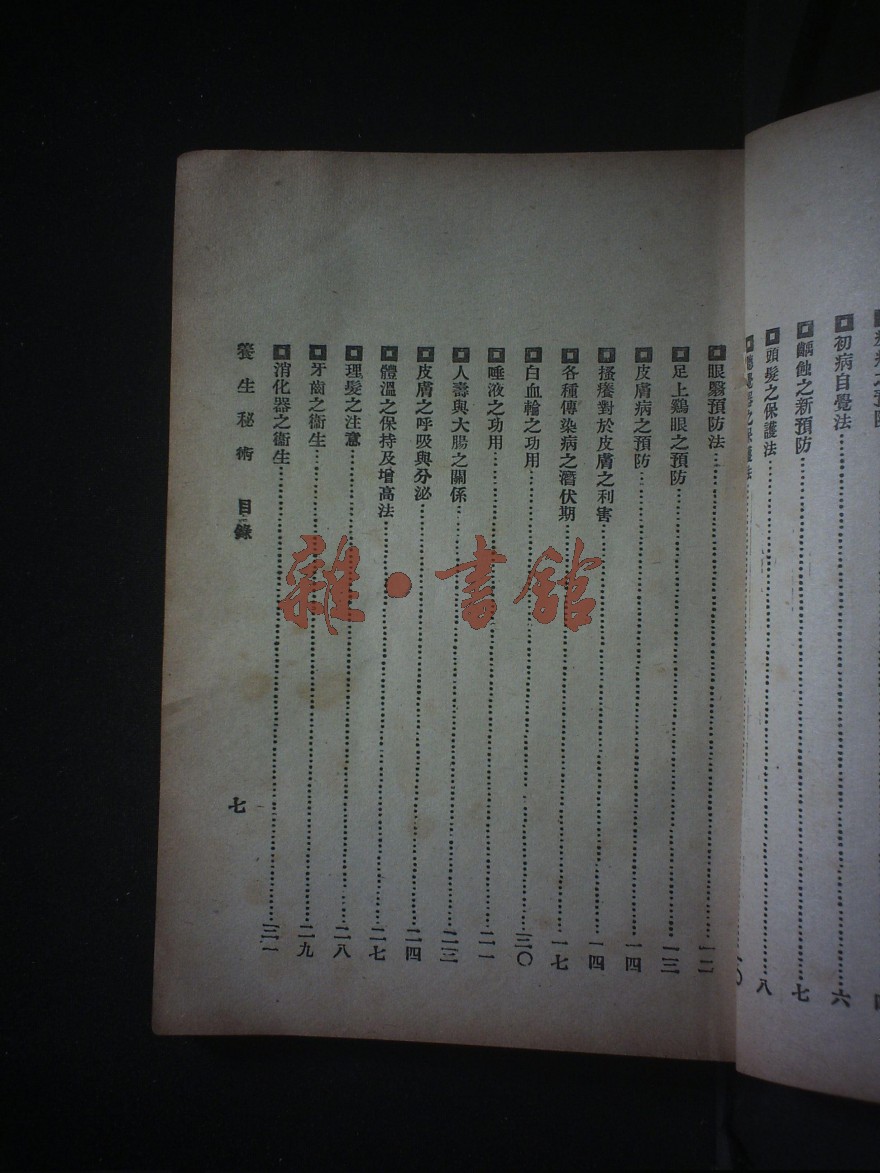 初病自覺法……六
齲蝕之新預防……七
頭髮之保護法……八
眼翳預防法……一二
足上鷄眼之預防……一三
皮膚病之預防……一四
搔癢對於皮膚之利害……一四
各種傳染病之潛伏期……一七
白血輪之功用……三〇
唾液之功用……二一
人壽與大腸之關係……二三
皮膚之呼吸與分泌……二四
體溫之保持及增高法……二七
理髮之注意……二八
牙齒之衞生……二九
消化器之衞生……三一
養生秘術 目錄 七
雜·書館